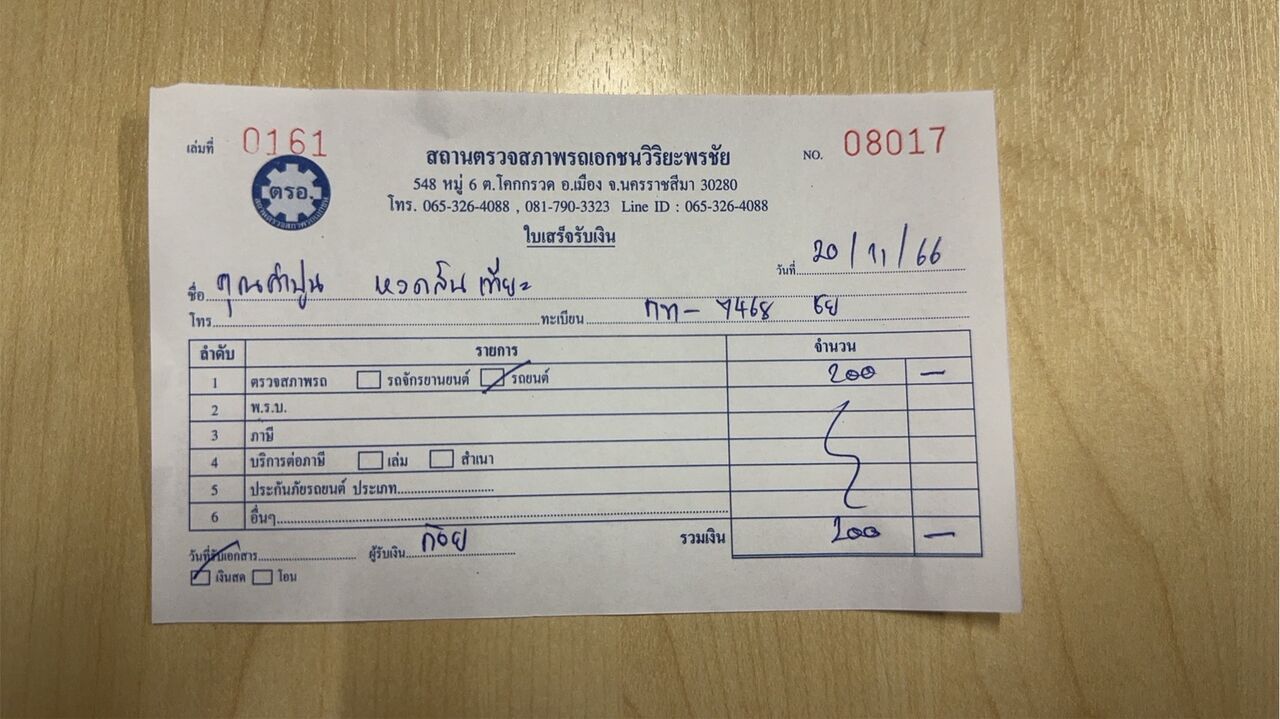 เล่มที่ 0161
NO. 08017
ตรอ.
สถานตรวจสภาพรถเอกชน
สถานตรวจสภาพรถเอกชนวิริยะพรชัย
548 หมู่ 6 ต.โคกกรวด อ.เมือง จ.นครราชสีมา 30280
โทร. 065-326-4088 , 081-790-3323 Line ID : 065-326-4088
ใบเสร็จรับเงิน
วันที่ 20/11/66
ชื่อ คุณคำปูน
โทร ทะเบียน กท- 7468 ชย
ลำดับ รายการ จำนวน
1 ตรวจสภาพรถ รถจักรยานยนต์ รถยนต์ 200 —
2 พ.ร.บ.
3 ภาษี
4 บริการต่อภาษี เล่ม สำเนา
5 ประกันภัยรถยนต์ ประเภท
6 อื่นๆ
รวมเงิน 200 —
วันที่รับเอกสาร ผู้รับเงิน ก้อย
เงินสด โอน